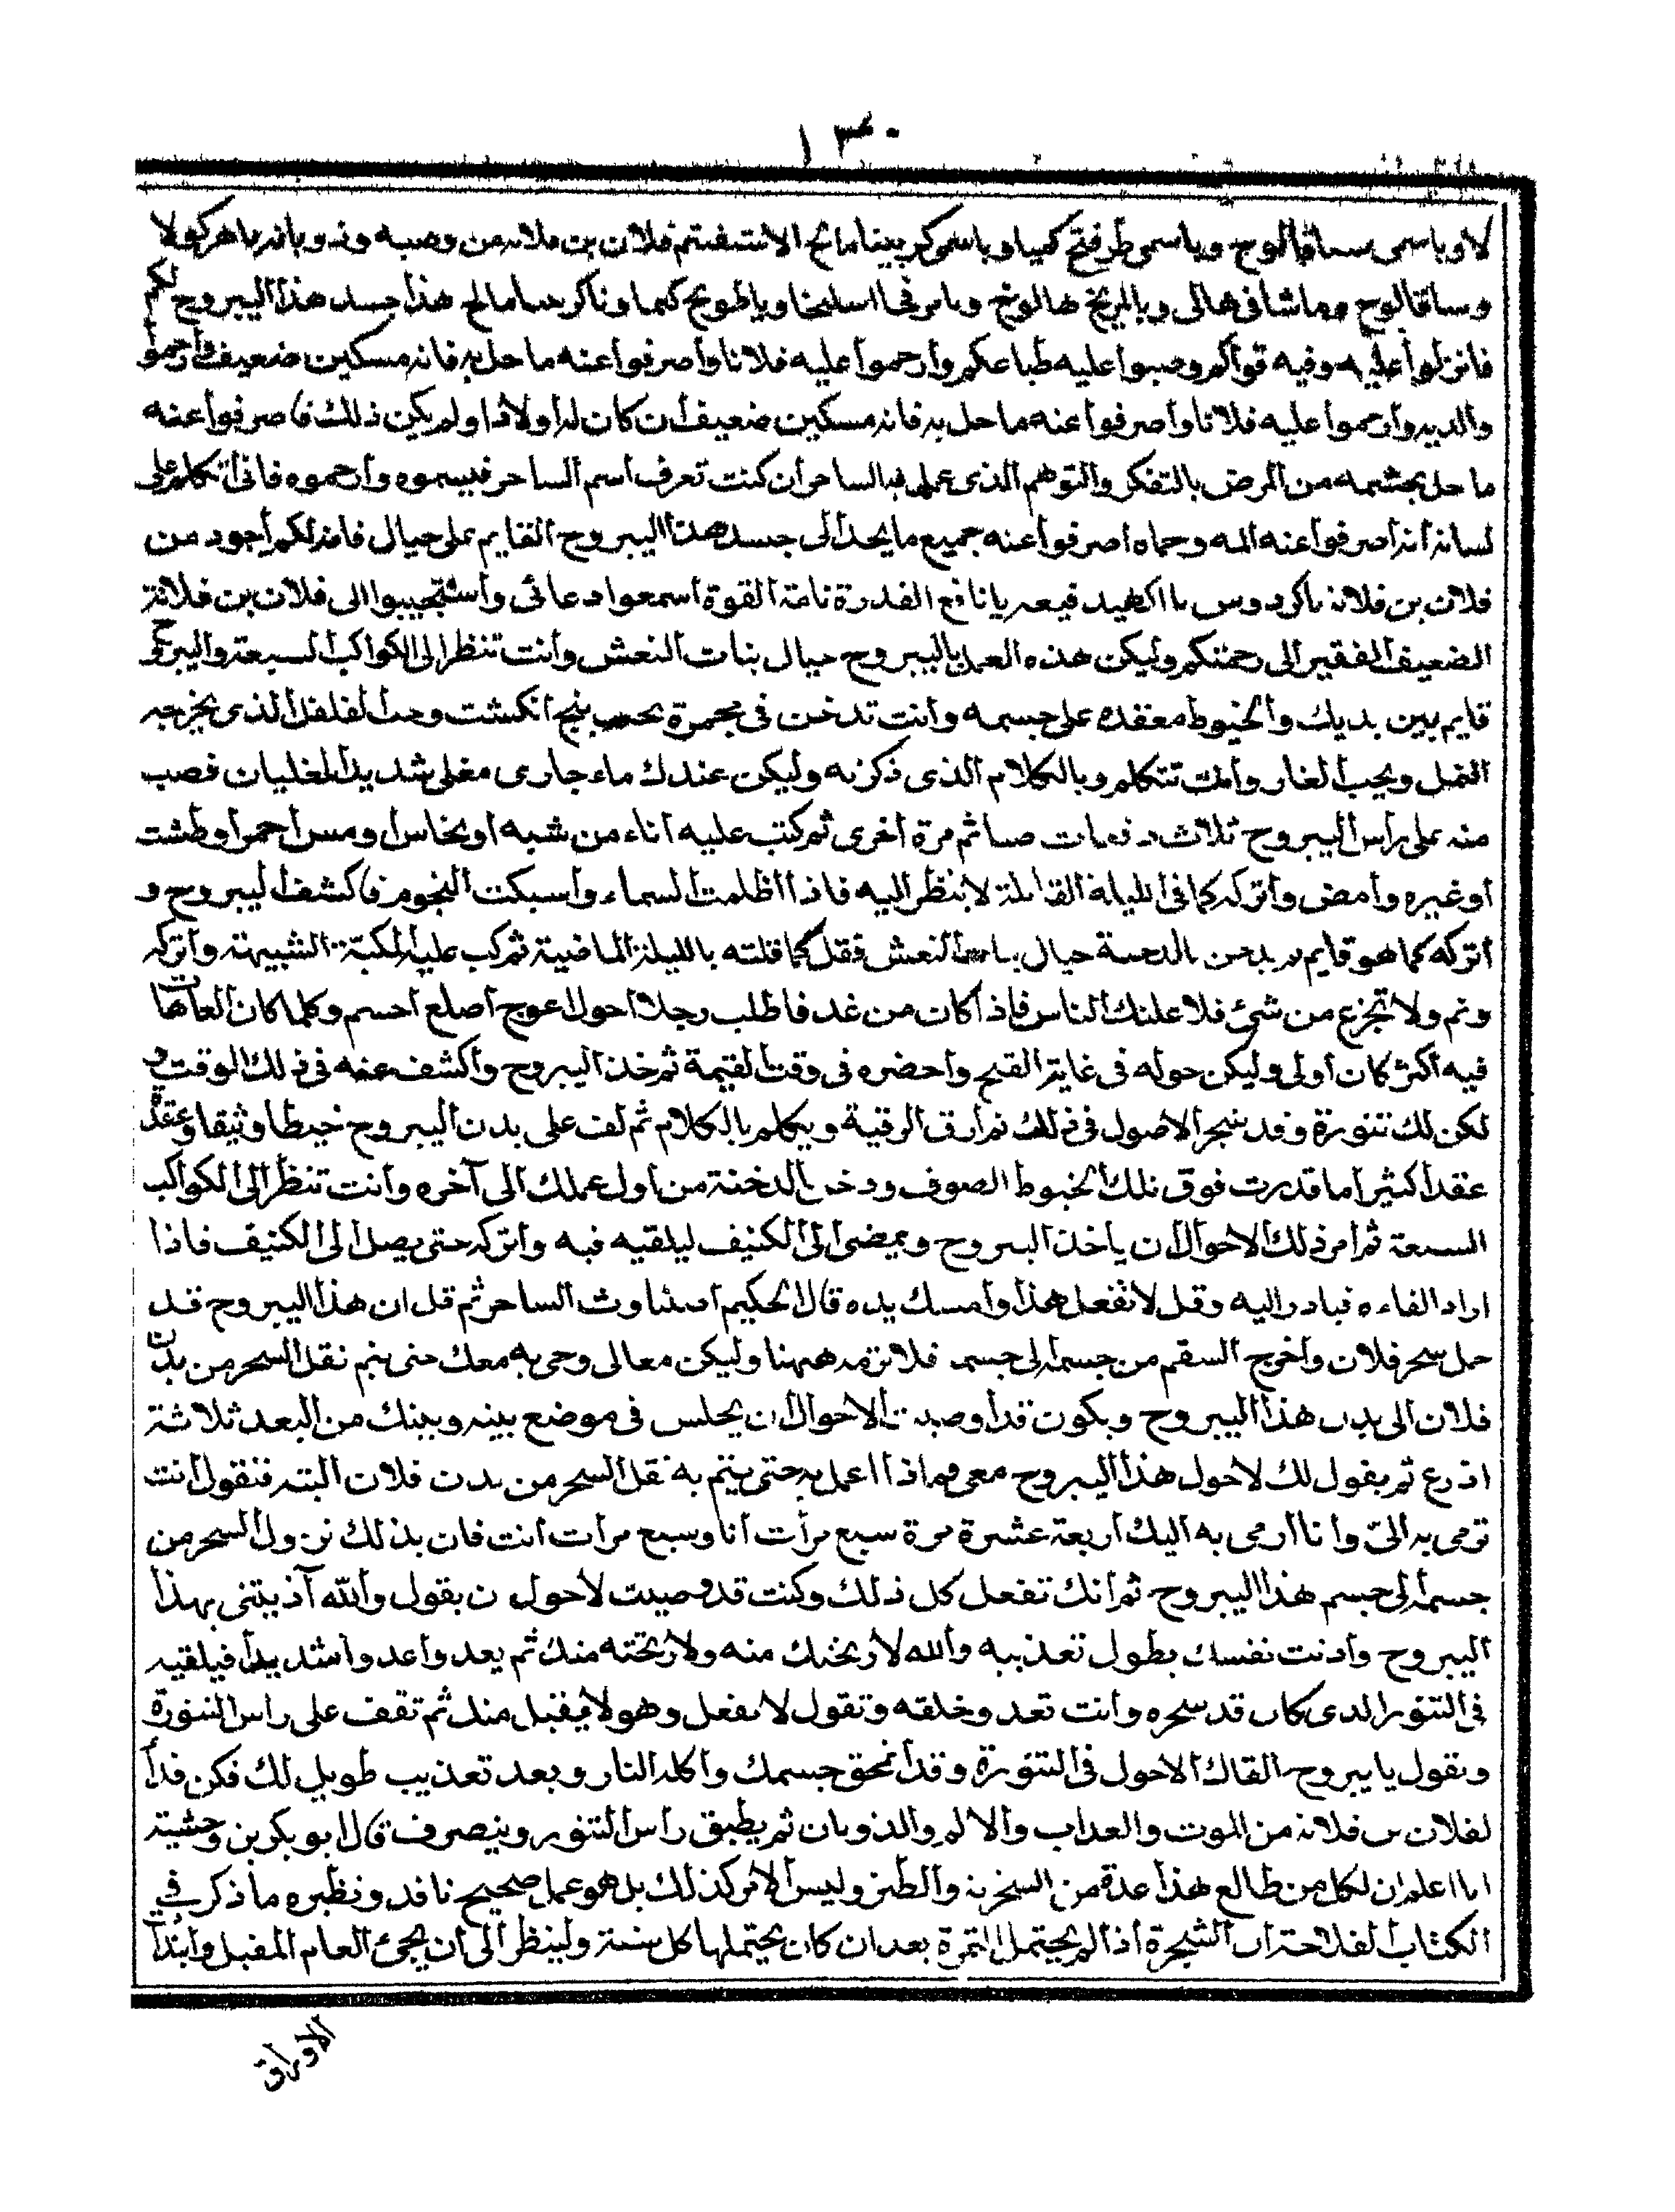 ١٣٠
لا وباسمى ساقالوح وباسمى طرفتح كميا وباسمى كربينا مالح الا شفيتم فلان بن فلانه من وصبه
وساقالوح وماشافى هالى وبالمريخ هالوخ هذا جسد هذا اليبروح لكم
فانزلوا عليه وفيه قواكم وصبوا عليه طباعكم وارحموا عليه فلانا واصرفوا عنه ما حل به فانه مسكين ضعيف وارحموا
والديه وارحموا عليه فلانا واصرفوا عنه ما حل به فانه مسكين ضعيف ان كان له اولادا ولم يكن ذلك فاصرفوا عنه
ما حل بجسمه من المرض بالتفكر والتوهم الذى عمله فيه الساحر ان كنت تعرف اسم الساحر فيسموه وارحموه فانى اتكلم على
لسانه انه اصرفوا عنه المه وحماه اصرفوا عنه جميع ما يجد الى جسد هذا اليبروح القايم على حيالى فانه لكم اجود من
فلان بن فلانه يا نافع القدرة تامة القوة اسمعوا دعائى واستجيبوا الى فلان بن فلانة
الضعيف الفقير الى رحمتكم وليكن هذه العمل باليبروح حيال بنات النعش وانت تنظر الى الكواكب السبعة واليبروح
قايم بين يديك والخيوط معقده على جسمه وانت تدخن فى مجمرة بحب بنج انكشت وحب الفلفل الذى يخرجه
النمل وبحب الغار وانت تتكلم وبالكلام الذى ذكرته وليكن عندك ماء جارى مغلى شديد الغليان فصب
منه على راس اليبروح ثلاث دفعات صبا ثم مرة اخرى ثم كتب عليه اناء من شبه او نحاس او مس احمر او طشت
او غيره وامض واتركه كما فى الليلة القابلة لا ينظر اليه فاذا اظلمت السماء واسبكت النجوم فاكشف اليبروح و
اتركه كما هو قايم حيال بنات النعش فقل كما قلته بالليلة الماضية ثم كب عليه المكبّة الشبيهة واتركه
ونم ولا تجزع من شئ فلا علنك الناس فاذا كان من غد فاطلب رجلا احول اعوج اصلع احسم وكلما كان العاهات
فيه اكثر كان اولى وليكن حوله فى غاية القبح واحضره فى وقت القيمة ثم خذ اليبروح واكشف عنه فى ذلك الوقت و
لكن لك تنورة وقد شجر الاصول فى ذلك ثم ارق الرقية ويتكلم بالكلام ثم لف على بدن اليبروح خيطا وثيقا وعقدّه
عقدا كثيرا ما قدرت فوق تلك الخيوط الصوف ودخن بالدخنة من اول عملك الى آخره وانت تنظر الى الكواكب
السبعة ثم امر ذلك الاحوال ان ياخذ اليبروح ويمضى الى الكنيف ليلقيه فيه واتركه حتى يصل الى الكنيف فاذا
اراد القاءه فبادر اليه وقل لا تفعل هذا وامسك يده قال الحكيم ادشاوث الساحر ثم قل ان هذا اليبروح قد
حمل سحر فلان واخرج السقم من جسمه الى جسمه فلا ترمه ههنا وليكن معالى وجى به معك حتى يتم نقل السحر من بدن
فلان الى بدن هذا اليبروح ويكون قد اوصيت الاحوال ان يجلس فى موضع بينه وبينك من البعد ثلاثة
اذرع ثم يقول لك لاحول هذا اليبروح معى فماذا اعمل به حتى يتم به نقل السحر من بدن فلان البتة فتقول انت
ترمى به الىّ وانا ارمى به اليك اربعة عشرة مرة سبع مرات انا وسبع مرات انت فان بذلك نزول السحر من
جسمه الى جسم هذا اليبروح ثم انك تفعل كل ذلك وكنت قد وصيت لاحول ن يقول والله آذيتنى بهذا
اليبروح واذنت نفسك بطول تعذيبه والله لاريخك منه ولاريخته منك ثم يعد واعد واشد يدا فيلقيه
فى التنور الذى كان قد سجره وانت تعد وخلقه وتقول لا تفعل وهو لا يقبل منك ثم تقف على راس التنورة
وتقول يا يبروح القاك الاحول فى التنورة وقد انمحق جسمك واكله النار وبعد تعذيب طويل لك فكن فدا
لفلان بن فلانه من الموت والعذاب والالم والذوبان ثم يطبق راس التنور وينصرف قال ابو بكر بن وحشية
انا اعلم ان لكل من طالع هذا عدة من السخرية والطنز وليس الامر كذلك بل هو عمل صحيح نافد ونظيره ما ذكر في
الكتاب الفلاحة ان الشجرة اذا لم يحتمل الثمرة بعد ان كان يحتملها كل سنة ولينظر الى ان يجئ العام المقبل وابتدا
الاوراق